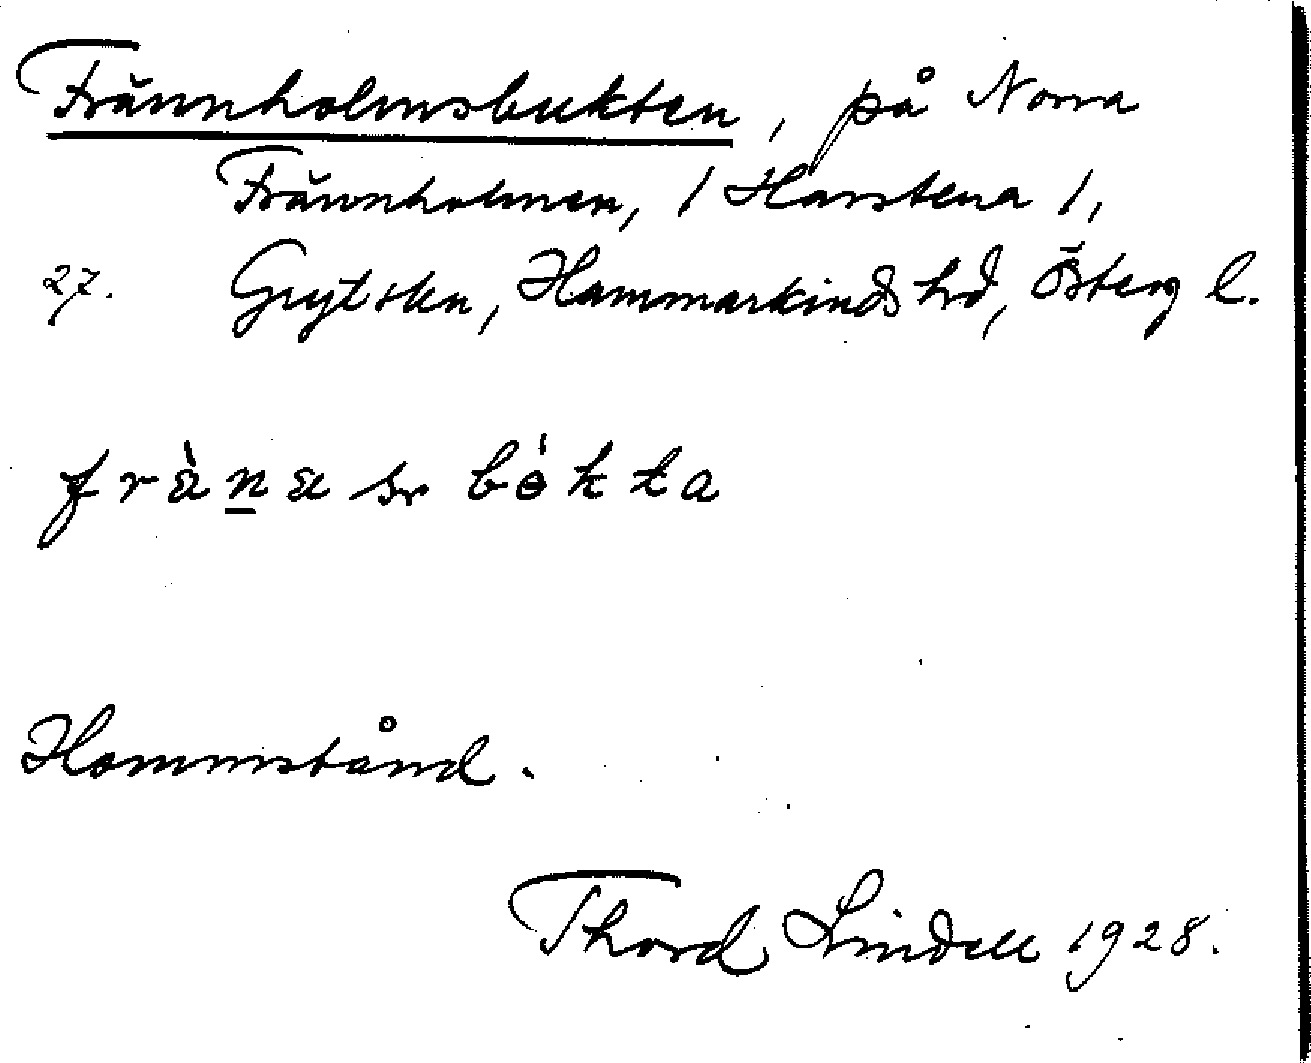 Frännholmsbukten, på Norra
Frännholmen, / Harstena /,
27. Gryt skn, Hammarkinds hd, Österg l.
fränasr bökta
Hammstånd.
Thord Lindell 1928.